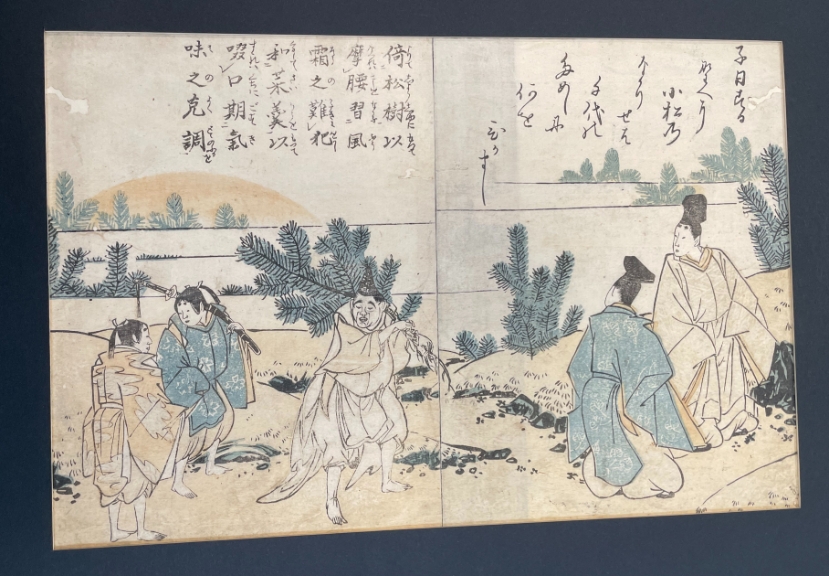 子日する
野へに
小松の
なかりせは
千代の
ためしに
何を
ひかまし
倚松樹以
摩腰習風
霜之難犯
和菜羹以
啜口期氣
味之克調